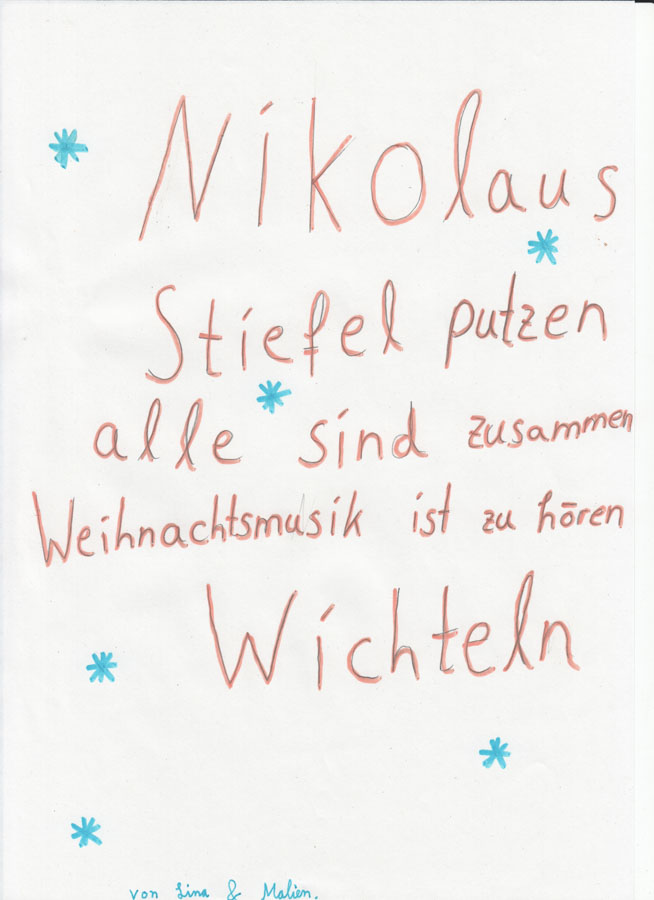 Nikolaus
Stiefel putzen
alle sind zusammen
Weihnachtsmusik ist zu hören
Wichteln
von Lina & Malien.